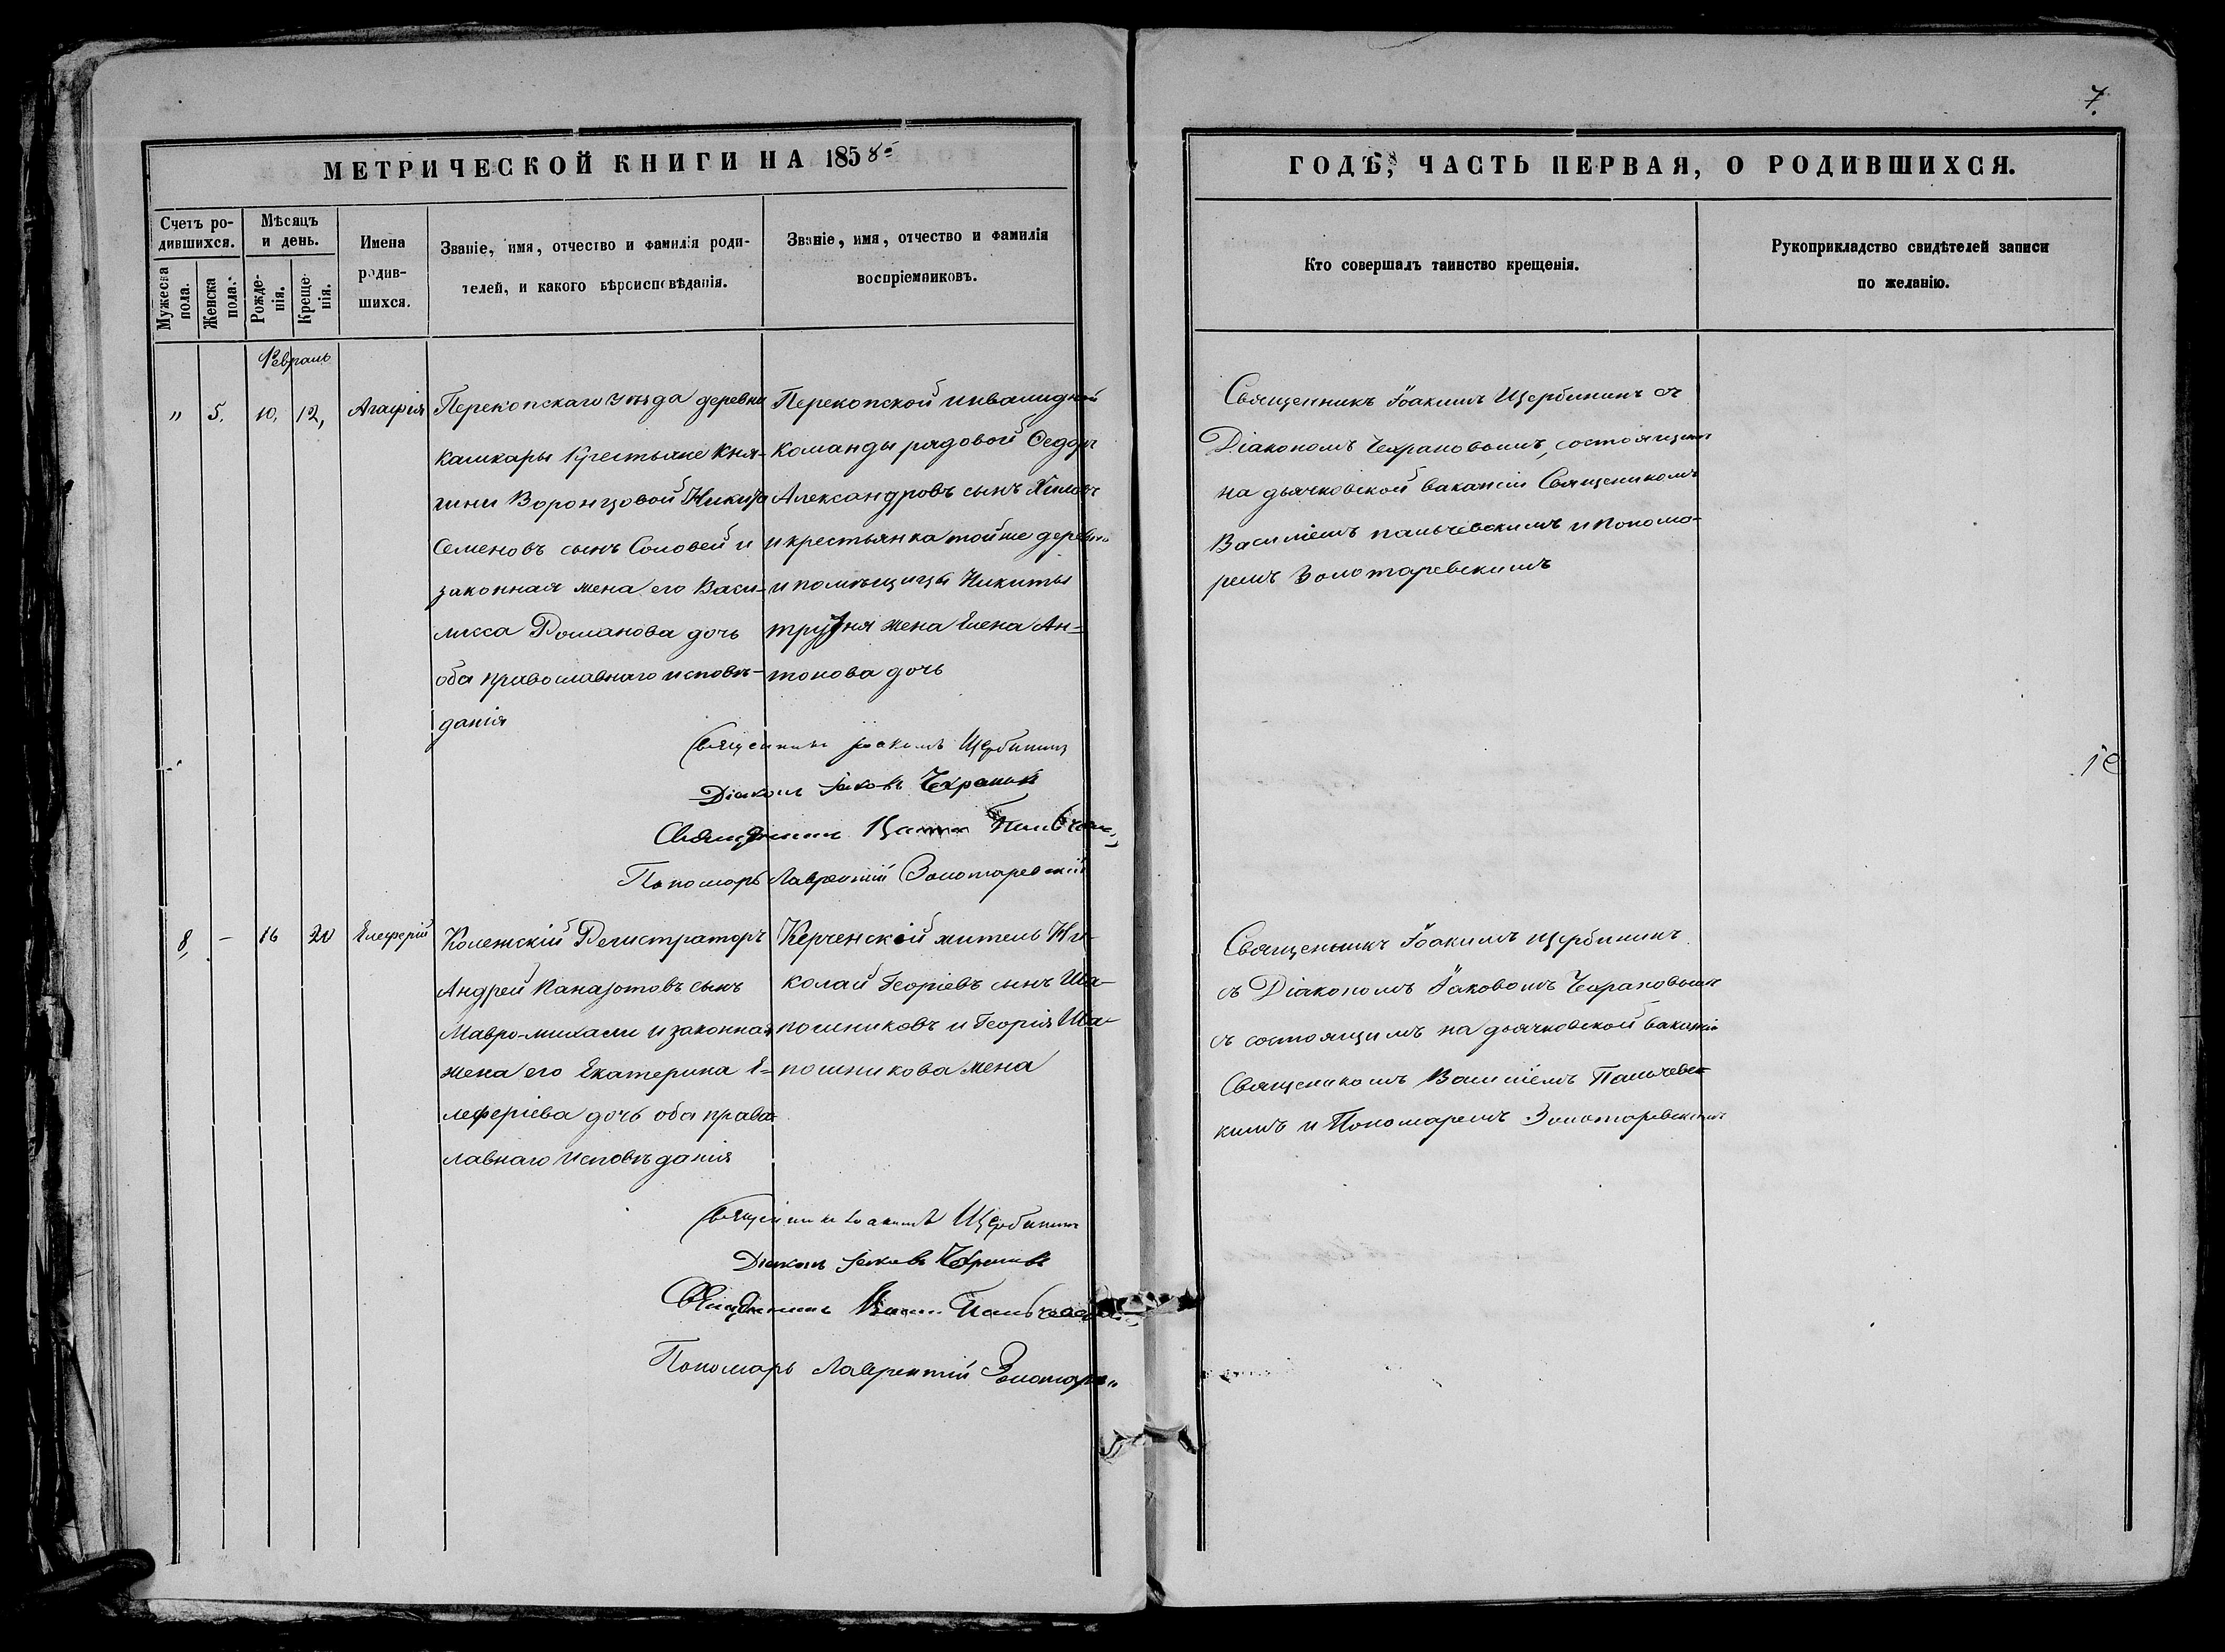 7.
МЕТРИЧЕСКОЙ КНИГИ НА 1858
ГОДЪ, ЧАСТЬ ПЕРВАЯ, О РОДИВШИХСЯ.
Счетъ ро-
дившихся.
Мужеска
пола.
Женска
пола.
Мѣсяцъ
и день.
Рожде-
нія.
Креще-
нія.
Имена
родив-
шихся.
Званіе, имя, отчество и фамилія роди-
телей, и какого вѣроисповѣданія.
Званіе, имя, отчество и фамилія
воспріемниковъ.
Кто совершалъ таинство крещенія.
Рукоприкладство свидѣтелей записи
по желанію.
Февраль
" 5. 10. 12, Агафія
Перекопскаго уѣзда деревни
Камкары Крестьяне Кня-
гини Воронцовой Никита
Семеновъ сынъ Соловей и
законная жена его Васи-
лисса Романова дочь
оба православнаго исповѣ-
данія
Перекопской инвалидной
команды рядовой Федоръ
Александровъ сынъ
и крестьянка тойже деревни
и помѣщицы Никиты
жена Елена Ан-
тонова дочь
Священникъ Іоакимъ Щербининъ съ
Діакономъ Чехрановымъ, состоящимъ
на дьячковской вакансіи Священикомъ
Василіемъ Пальчевскимъ и пономо-
ремъ Золотаревскимъ
Священникъ Іоакимъ Щербининъ
Діаконъ Іаковъ
Священникъ
Пономарь Лаврентій Золотаревскій
8, – 16 20 Елеферій
Колежскій Регистраторъ
Андрей Панаіотовъ сынъ
Мавро-михали и законная
жена его Екатерина Е-
леферіева дочь оба право-
лавнаго исповѣданія
Керченскій житель Ни-
колай Георіевъ сынъ Ша-
пошниковъ и Георія Ша-
пошникова жена
Священникъ Іоакимъ Щербининъ
съ Діакономъ Іаковомъ Чехрановымъ
съ состоящимъ на дьячковской вакансіи
Священикомъ Василіемъ Пальчевс-
кимъ и Пономаремъ Золотаревскимъ
Священникъ Іоакимъ Щербининъ
Діаконъ Іаковъ
Священникъ
Пономарь Лаврентій